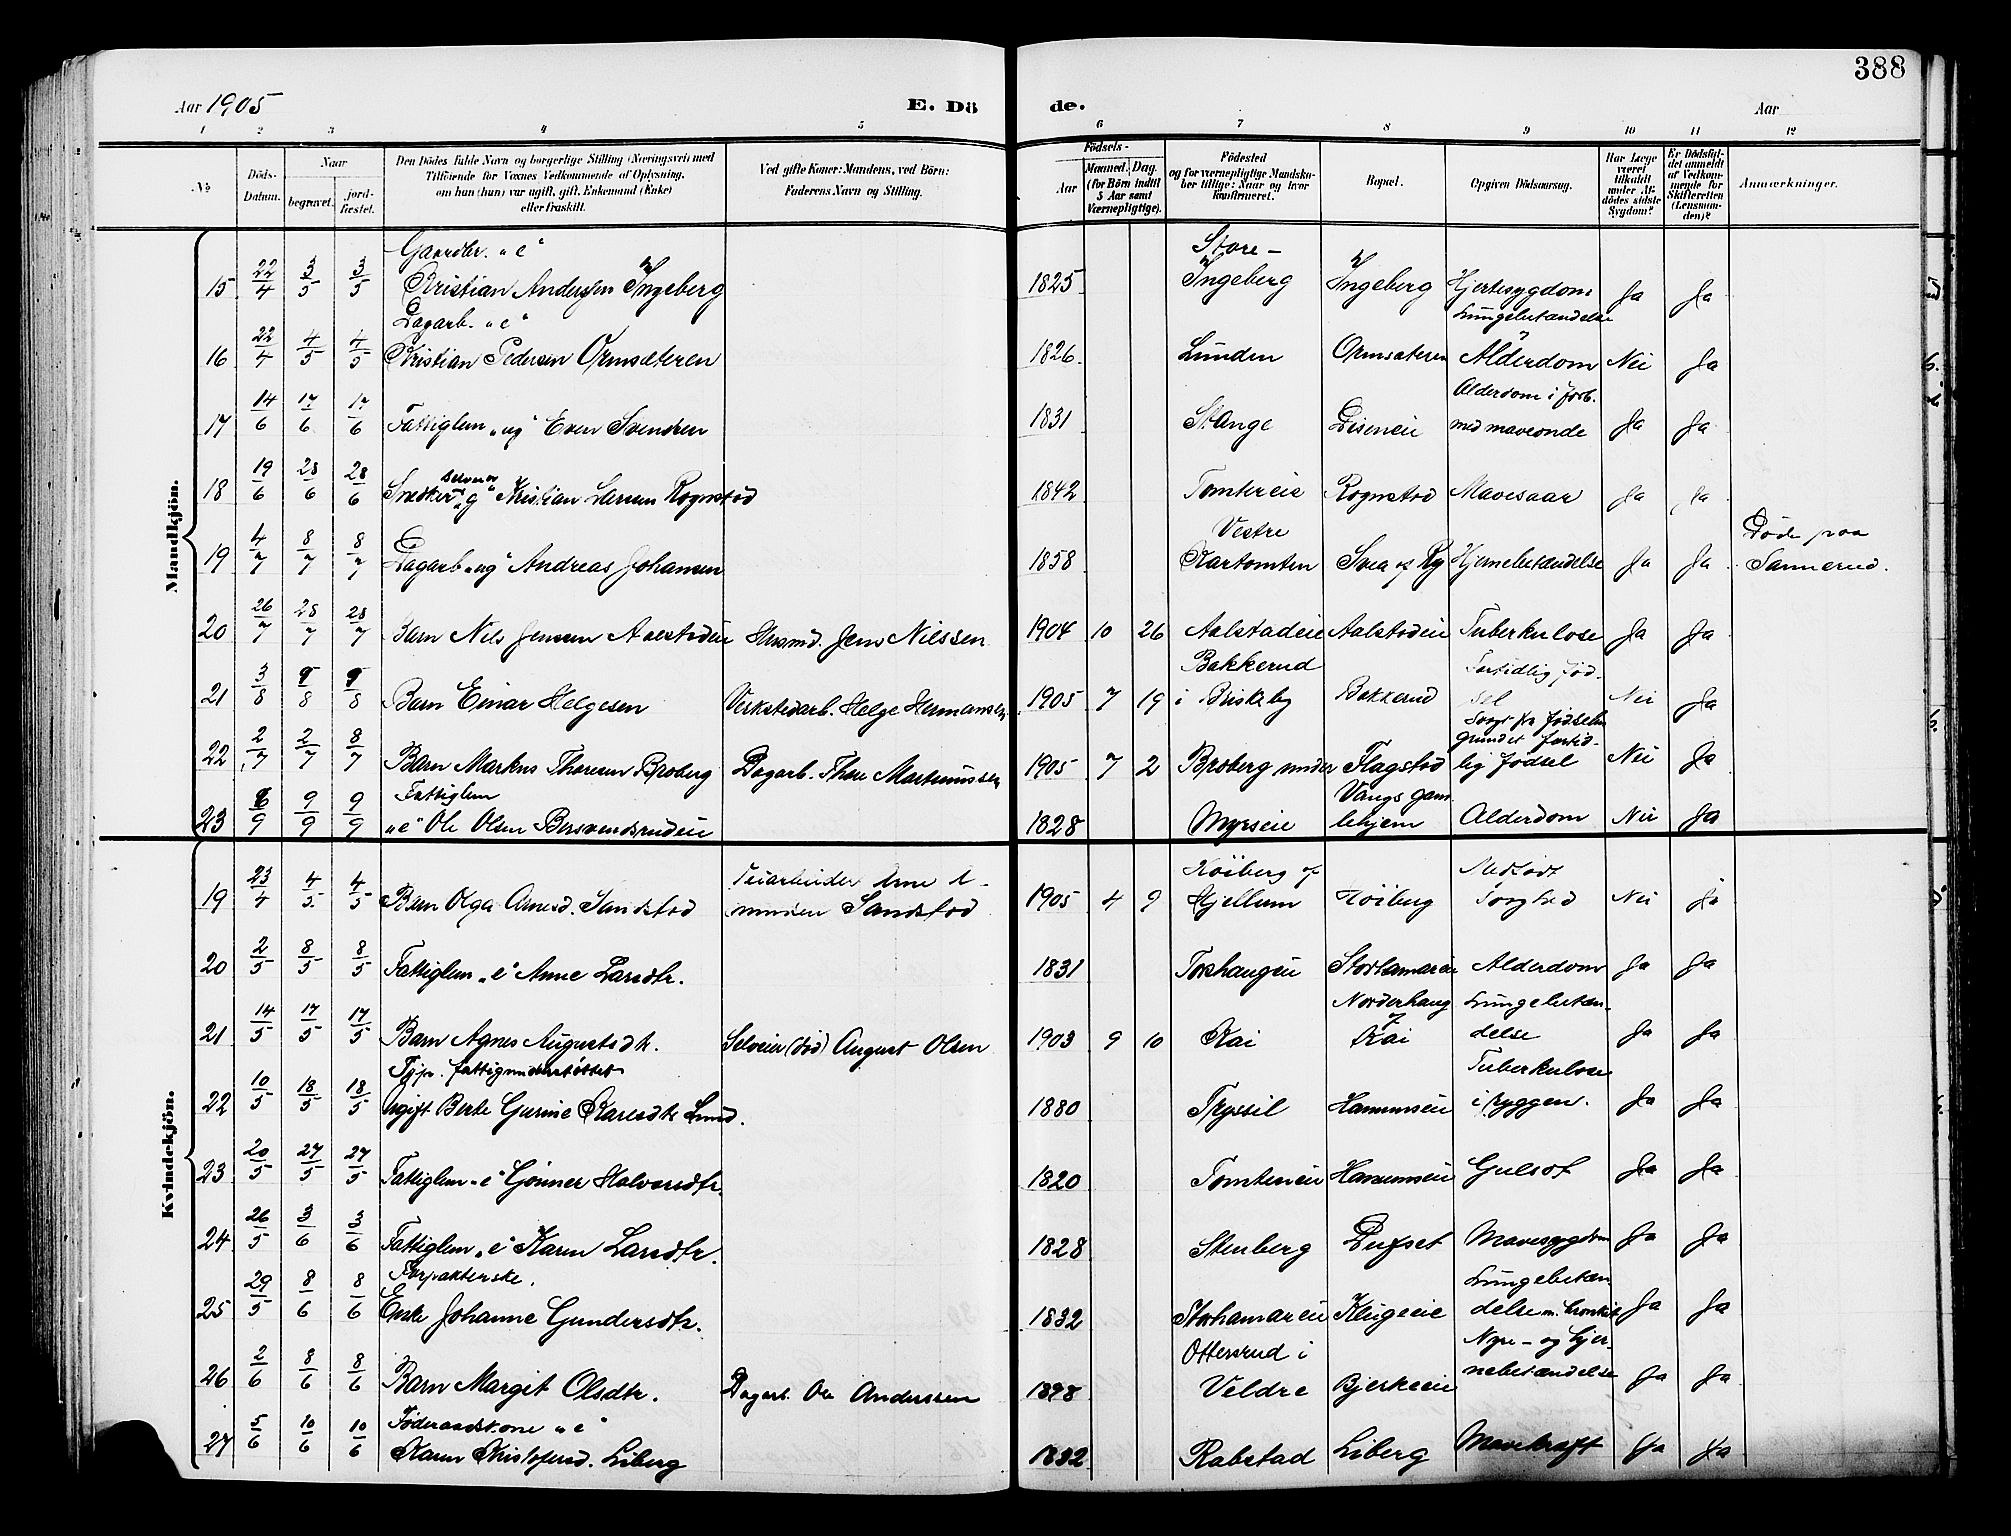 388
Aar 1905
E. Dö de.
Aar
1 2 3 4 5 6 7 8 9 10 11 12
No
Döds-Datum.
Naar
begravet.
jord-fæstet.
Den Dödes fulde Navn og borgerlige Stilling (Næringsvei) med
Tilföiende for Voxnes Vedkommende af Oplysning,
om han (hun) var ugift, gift, Enkemand (Enke)
eller fraskilt.
Ved gifte Koner: Mandens, ved Börn:
Faderens Navn og Stilling.
Födsels-
Aar
Maaned. Dag.
(for Börn indtil
5 Aar samt
Værnepligtige).
Födested
og for værnepligtige Mandskaber tillige: Naar og hvor
konfirmeret.
Bopæl.
Opgiven Dödsaarsag.
Har Læge
været
tilkaldt
under Afdödes sidste
Sygdom?
Er Dödsfaldet anmeldt
af Vedkommende for
Skifteretten
(Lensmanden)?
Anmærkninger.
Mandkjön.
Gaardbr. "e" Store-
15 22/4 3/5 3/5 Kristian Andersen Ingeberg 1825 Ingeberg Ingeberg Hjertesygdom Ja Ja
Dagarb. "e" Lungebetændelse
16 22/4 4/5 4/5 Kristian Pedersen Ormsæteren 1826. Lunden Ormsæteren Alderdom Nei Ja
Alderdom i forb.
17 14/6 17/6 17/6 Fattiglem "ug" Even Svendsen 1831 Stange Diseneie med maveonde Ja Ja
18 19/6 28/6 28/6 Snedker "g" Kristian Larsen Rognstad 1842 Tomtereie Rognstad Mavesaar Ja Ja
Vestre Døde paa
19 4/7 8/7 8/7 Dagarb "ug" Andreas Johansen 1858 Kartomten Svea af Ry Hjernebetændelse Ja Ja Sannerud.
20 26/7 28/7 28/7 Barn Nils Jensen Aalstadeie Husmd. Jens Nilssen 1904 10 26 Aalstadeie Aalstadeie Tuberkulose Ja Ja
Bakkerud Fortidlig fød-
21 3/8 9/8 9/8 Barn Einar Helgesen Verkstedarb. Helge Hermansen 1905 7 19 i Briskeby Bakkerud sel Nei Ja
Svagt fra fødselen
grundet fortid-
22 2/7 2/7 8/7 Barn Markus Thoresen Broberg Dagarb. Thore Martinussen 1905 7 2 Broberg under Flagstad lig fødsel Nei Ja
Fattiglem Vangs gam-
23 6/9 9/9 9/9 "e" Ole Olsen Bersvendsrudeie 1828 Myrseie lehjem Alderdom Nei Ja
Kvindekjön.
Veiarbeider Arne A- Høiberg af Medfødt
19 23/4 4/5 4/5 Barn Olga Arnesd. Sandstad mundsen Sandstad 1905 4 9 Hjellum Høiberg Svaghed Nei Ja
20 2/5 8/5 8/5 Fattiglem "e" Anne Larsdtr. 1831 Torshaugeie Storhamareie Alderdom Ja Ja
Norderhaug Lungebetæn-
21 14/5 17/5 17/5 Barn Agnes Augustsdtr. Selveier (død) August Olsen 1903 9 10 Kai Kai delse Ja Ja
Tjp. fattigunderstøttet Tuberkulose
22 10/5 18/5 18/5 Ugift Berte Gurine Karesdtr Lund. 1880 Trysil Hammseie i ryggen. Ja Ja
23 20/5 27/5 27/5 Fattiglem "e" Gønner Halvorsdtr. 1820 Tomteneie Hammseie Gulsot Ja Ja
24 26/5 3/6 3/6 Fattiglem "e" Karen Larsdtr. 1828 Stenberg Dufset Mavesygdom Ja Ja
Forpakterske. Lungebetæn
25 29/5 8/6 8/6 Enke Johanne Gundersdtr. 1832 Storhamareie Klugeie delse m. bronkit Ja Ja
Ottersrud i Nyre- og hjer-
26 2/6 8/6 8/6 Barn Margit Olsdtr. Dagarb. Ole Anderssen 1898 Veldre Bjerkeeie nebetændelse Ja Ja
Føderaadskone "e"
27 5/6 10/6 10/6 Karen Kristofersd. Liberg 1832 Rabstad Liberg Mavekræft Ja Ja